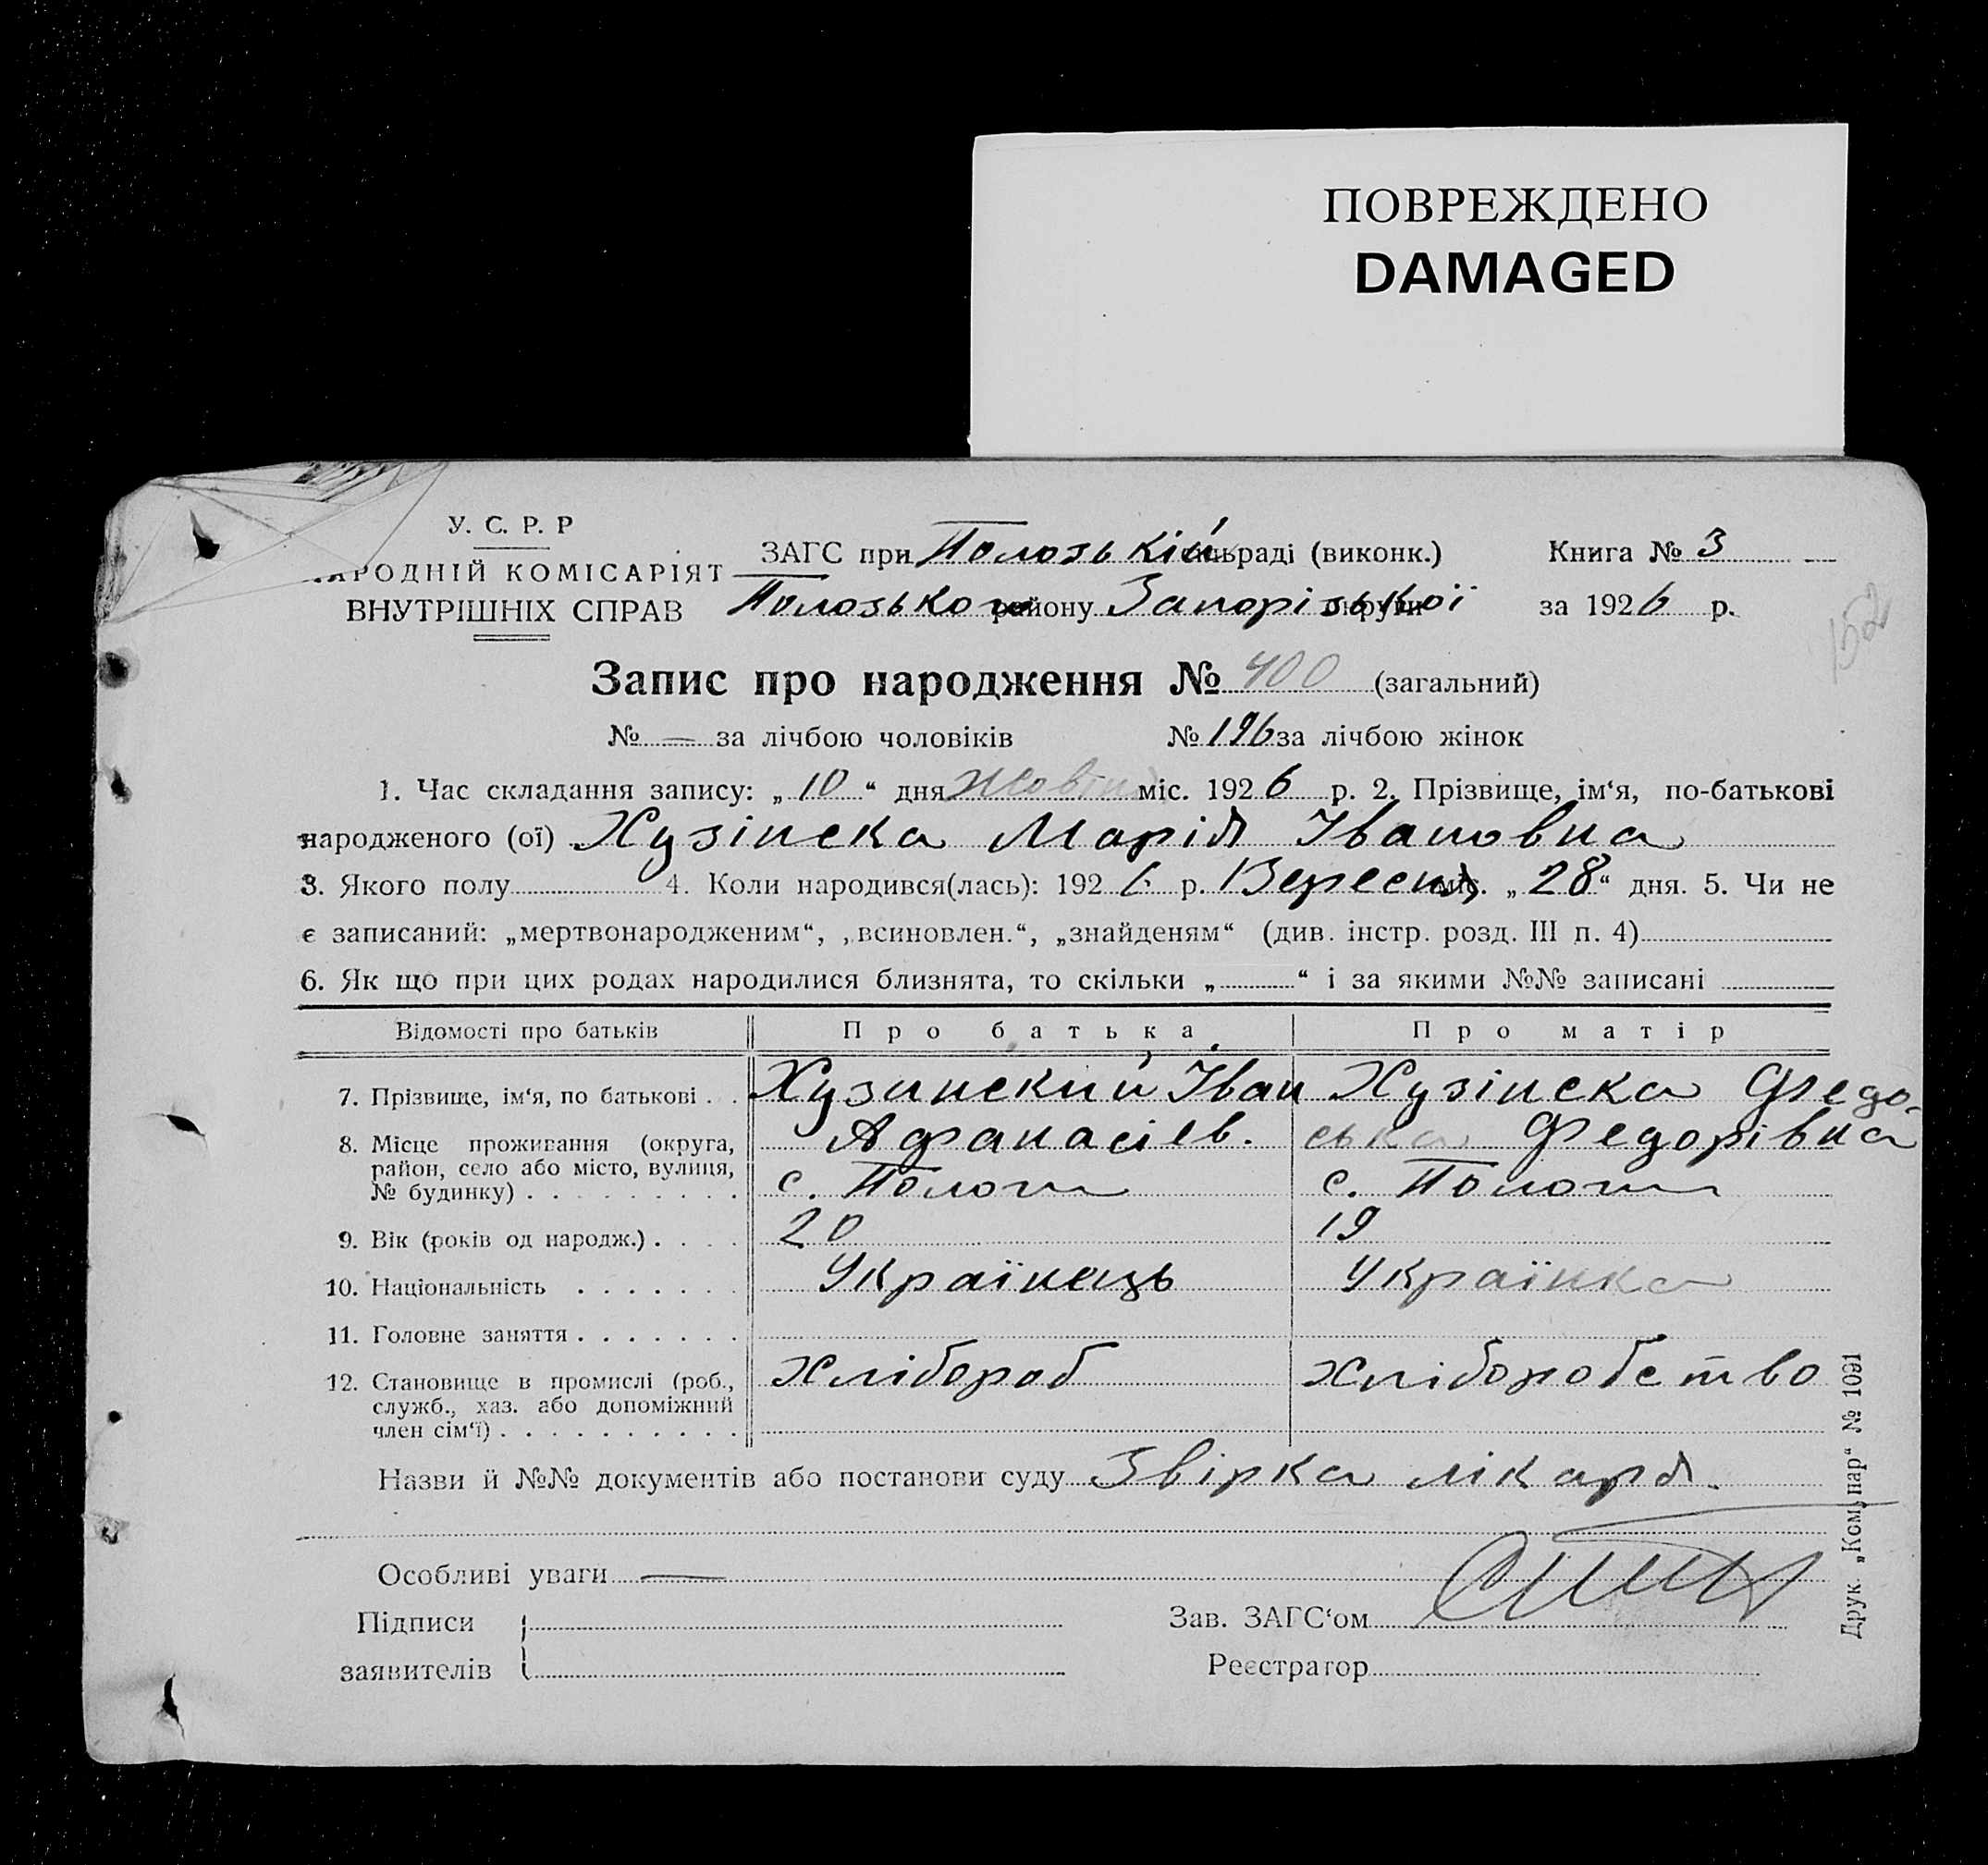 ПОВРЕЖДЕНО
DAMAGED
У. С. Р. Р
НАРОДНІЙ КОМІСАРІЯТ
ВНУТРІШНІХ СПРАВ
ЗАГС при Пологькій сільраді (виконк.) Книга № 3
району Запорізької округи за 1926 р.
152
Запис про народження № 400 (загальний)
№ — за лічбою чоловіків № 196 за лічбою жінок
1. Час складання запису: „ 10 “ дня Жовтня міс. 1926 р. 2. Прізвище, ім‘я, по-батькові
народженого (ої) Хузінска Марія Івановна
3. Якого полу 4. Коли народився(лась): 1926 р. Вересня міс. „ 28 “ дня. 5. Чи не
є записаний: „мертвонародженим“, „всиновлен.“, „знайденям“ (див. інстр. розд. III п. 4)
6. Як що при цих родах народилися близнята, то скільки „ “ і за якими №№ записані
Відомості про батьків Про батька Про матір
7. Прізвище, ім‘я, по батькові . . Хузинский Іван Хузінска Федо-
Афанасіев. ська Федорівна
8. Місце проживання (округа,
район, село або місто, вулиця,
№ будинку) . . . . . . . . . с. Пологи с. Пологи
9. Вік (років од народж.) . . . . 20 19
10. Національність . . . . . . . Українець Українка
11. Головне заняття . . . . . . .
12. Становище в промислі (роб.,
служб., хаз. або допоміжний
член сім‘ї) . . . . . . . . . . Хлібороб Хліборобство
Назви й №№ документів або постанови суду Звірка лікаря.
Особливі уваги —
Підписи
заявителів
Зав. ЗАГС‘ом
Реєстратор
Друк. „Ком, пар“ № 1091